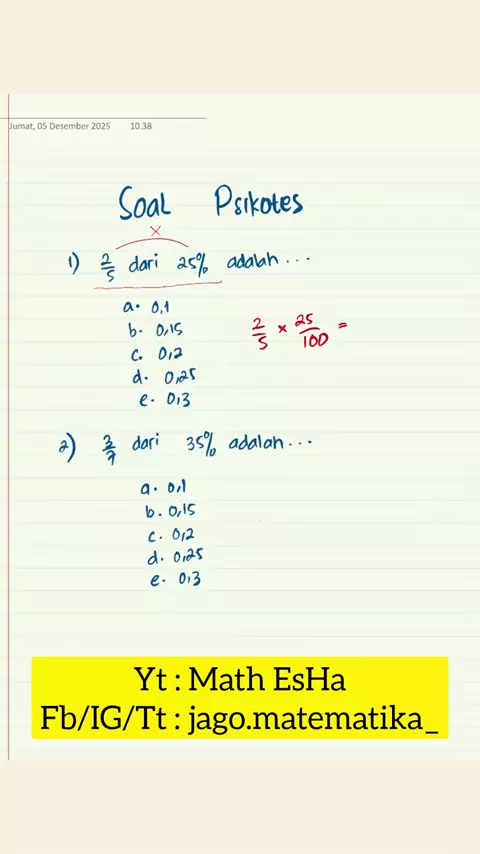 Jumat, 05 Desember 2025 10.38
Soal Psikotes
×
1) 2/5 dari 25% adalah ...
a. 0,1
b. 0,15
c. 0,2
d. 0,25
e. 0,3
2/5 × 25/100 =
2) 3/7 dari 35% adalah ...
a. 0,1
b. 0,15
c. 0,2
d. 0,25
e. 0,3
Yt : Math EsHa
Fb/IG/Tt : jago.matematika_